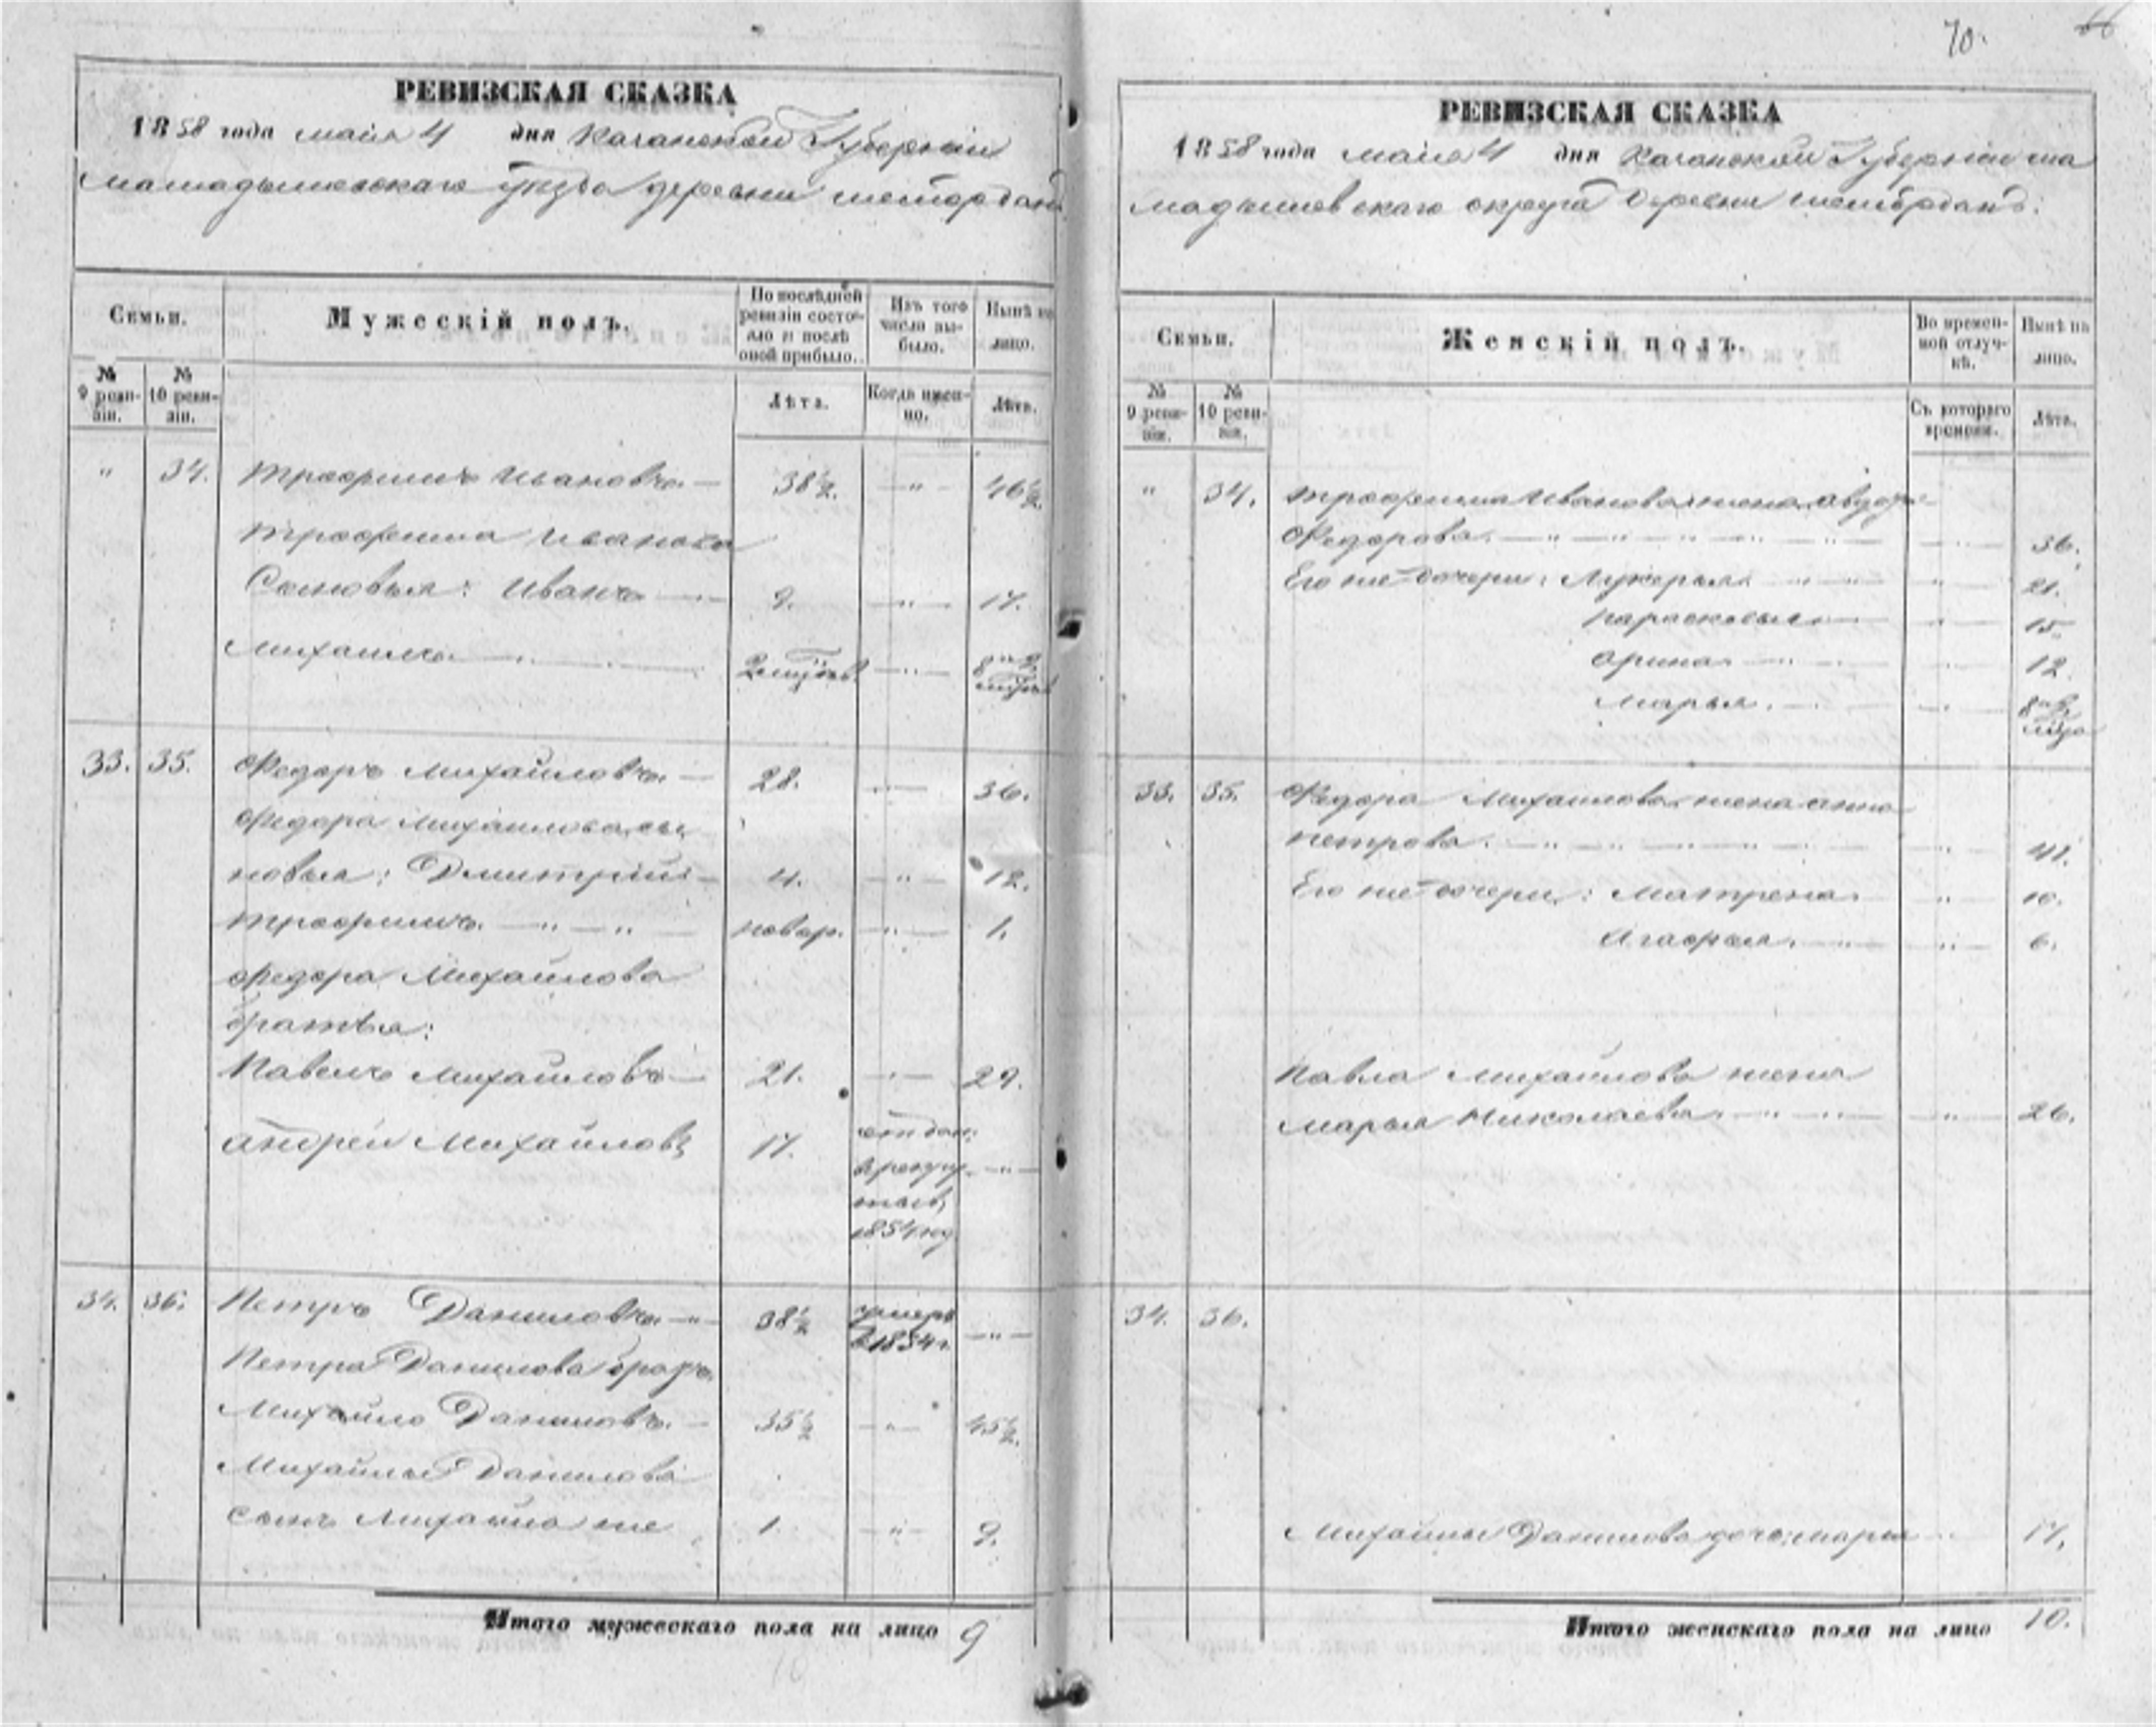 70.
РЕВИЗСКАЯ СКАЗКА
1858 года мaiя 4 дня Казанской Губернiи
Мамадышевскаго уѣзда деревни Шеморданъ
Семьи.
Мужескiй полъ.
По послѣдней ревизiи состояло и послѣ оной прибыло.
Изъ того числа выбыло.
Нынѣ на лицо.
№ 9 ревизiи.
№ 10 ревизiи.
Лѣта.
Когда именно.
Лѣта.
" 34. Трофимъ Ивановъ. — 38½. — " — 46½.
Трофима Иванова
Сыновья: Иванъ — 9. — " — 17.
Михайлъ. — "
33. 35. Федоръ Михайловъ. — 28. — " — 36.
Федора Михайлова сы
новья: Дмитрiй — 4. — " — 12.
Трофимъ. — " — " — новор. — " — 1.
Федора Михайлова
братья:
Павелъ Михайловъ — 21. — " — 29.
Андрей Михайловъ 17. отдан:
в рекру- — " —
ты въ
1854 году
34. 36. Петръ Даниловъ. — " — 38½ умеръ
в 1854 г. — " —
Петра Данилова братъ
Михайло Даниловъ. — 35½ — " — 45½.
Михайлы Данилова
сынъ Михайло же 1. — " — 9.
Итого мужескаго пола на лицо 9
РЕВИЗСКАЯ СКАЗКА
1858 года мaiя 4 дня Казанской Губернiи Ма
мадышевскаго округа деревни Шеморданъ.
Семьи.
Женскiй полъ.
Во временной отлучкѣ.
Нынѣ на лицо.
№ 9 ревизiи.
№ 10 ревизiи.
Съ котораго времени.
Лѣта.
" 34. Трофима Иванова жена Авдотья
Федорова. — " — " — " — " — " — 36.
Его же дочери: Лукерья. " — " 21.
Парасковья — " — 15.
Орина. — " — 12.
Марья. — "
33. 35. Федора Михайлова жена Анна
Петрова. — " — " — " — " — 41.
Его же дочери: Матрена. " — 10.
Агафья. — " — " — 6.
Павла Михайлова жена
Марья Николаева. — " — " — " — 26.
34. 36.
Михайлы Данилова дочь: Марья 17.
Итого женскаго пола на лицо 10.